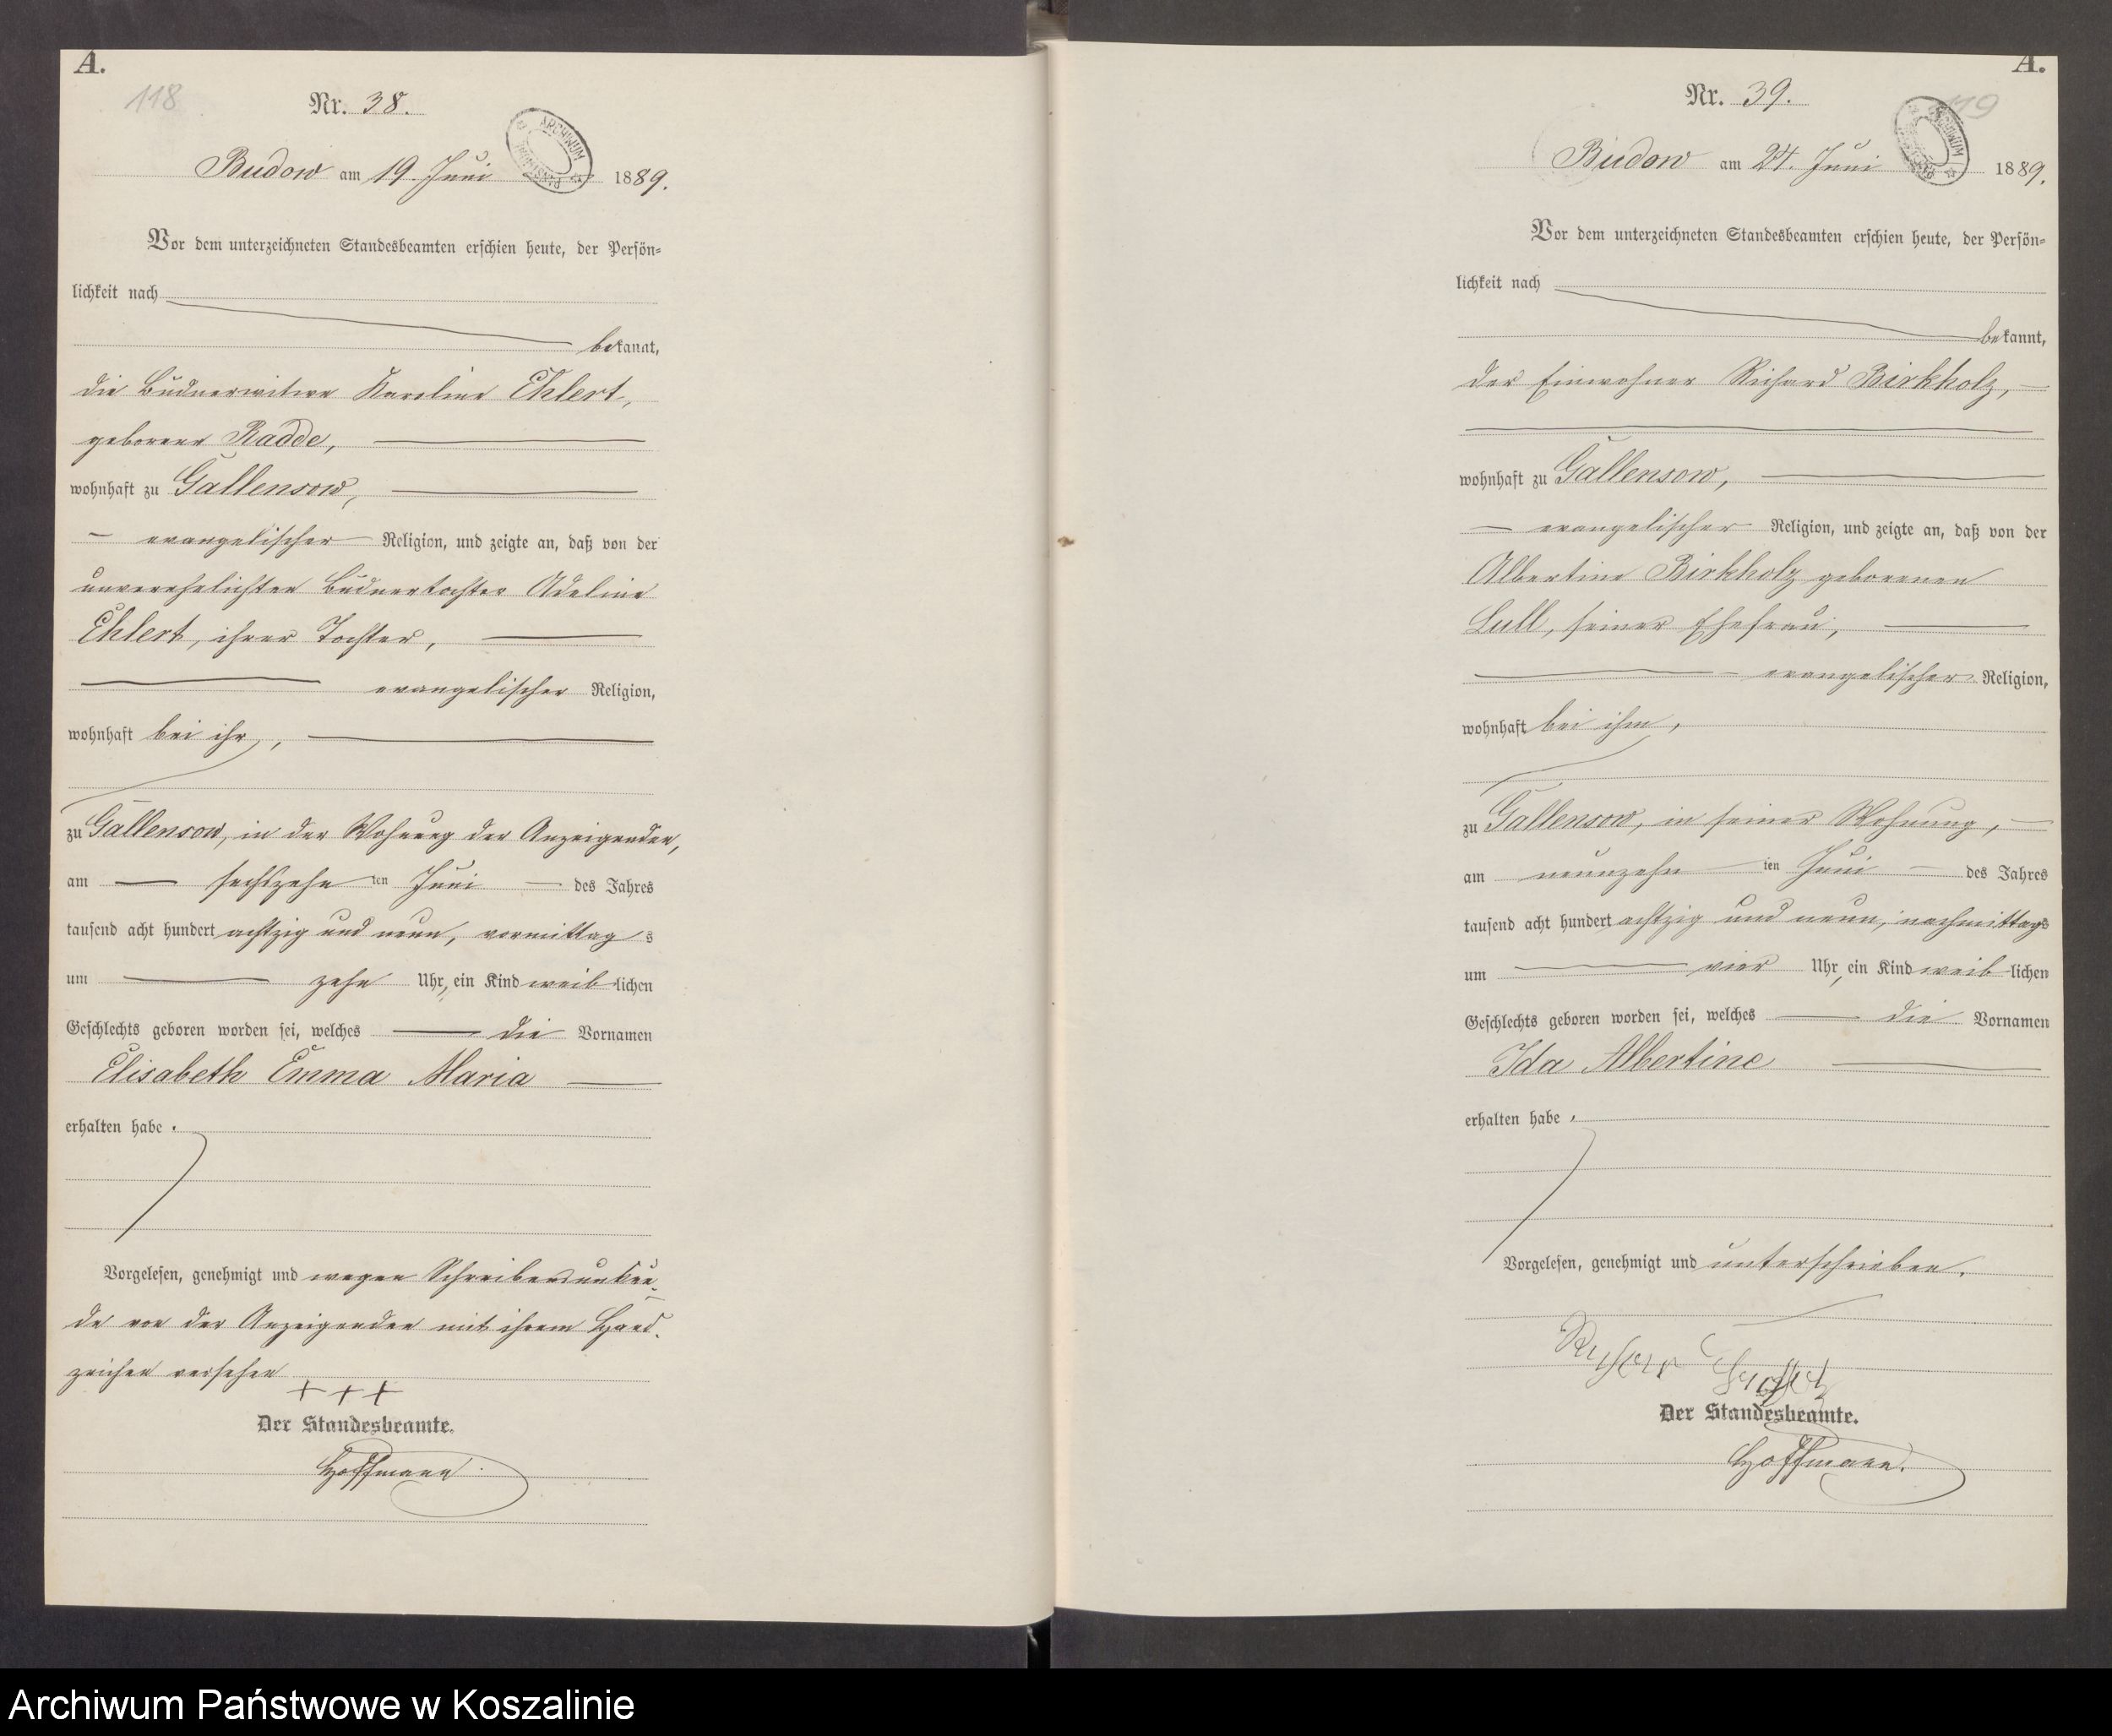 A.
118
Nr. 38.
ARCHIWUM
Budow am 19. Juni 1889.
Vor dem unterzeichneten Standesbeamten erschien heute, der Persön-
lichkeit nach
bekannt,
die Büdnerwitwe Karoline Ehlert,
geborene Radde,
wohnhaft zu Gallensow,
evangelischer Religion, und zeigte an, daß von der
unverehelichten Büdnertochter Adeline
Ehlert, ihrer Tochter,
evangelischer Religion,
wohnhaft bei ihr,
zu Gallensow, in der Wohnung der Anzeigenden,
am sechszehn ten Juni des Jahres
tausend acht hundert achtzig und neun, vormittags
um zehn Uhr, ein Kind weiblichen
Geschlechts geboren worden sei, welches die Vornamen
Elisabeth Emma Maria
erhalten habe.
Vorgelesen, genehmigt und wegen Schreibensunkun-
de von der Anzeigenden mit ihrem Hand-
zeichen versehen
+ + +
Der Standesbeamte.
Hoffmann
A.
119
Nr. 39.
ARCHIWUM
Budow am 24. Juni 1889.
Vor dem unterzeichneten Standesbeamten erschien heute, der Persön-
lichkeit nach
bekannt,
der Einwohner Richard Birkholz,
wohnhaft zu Gallensow,
evangelischer Religion, und zeigte an, daß von der
Albertine Birkholz geborenen
Lull, seiner Ehefrau,
evangelischer Religion,
wohnhaft bei ihm,
zu Gallensow, in seiner Wohnung,
am neunzehn ten Juni des Jahres
tausend acht hundert achtzig und neun, nachmittags
um vier Uhr, ein Kind weiblichen
Geschlechts geboren worden sei, welches die Vornamen
Ida Albertine
erhalten habe.
Vorgelesen, genehmigt und unterschrieben.
Der Standesbeamte.
Hoffmann.
Archiwum Państwowe w Koszalinie